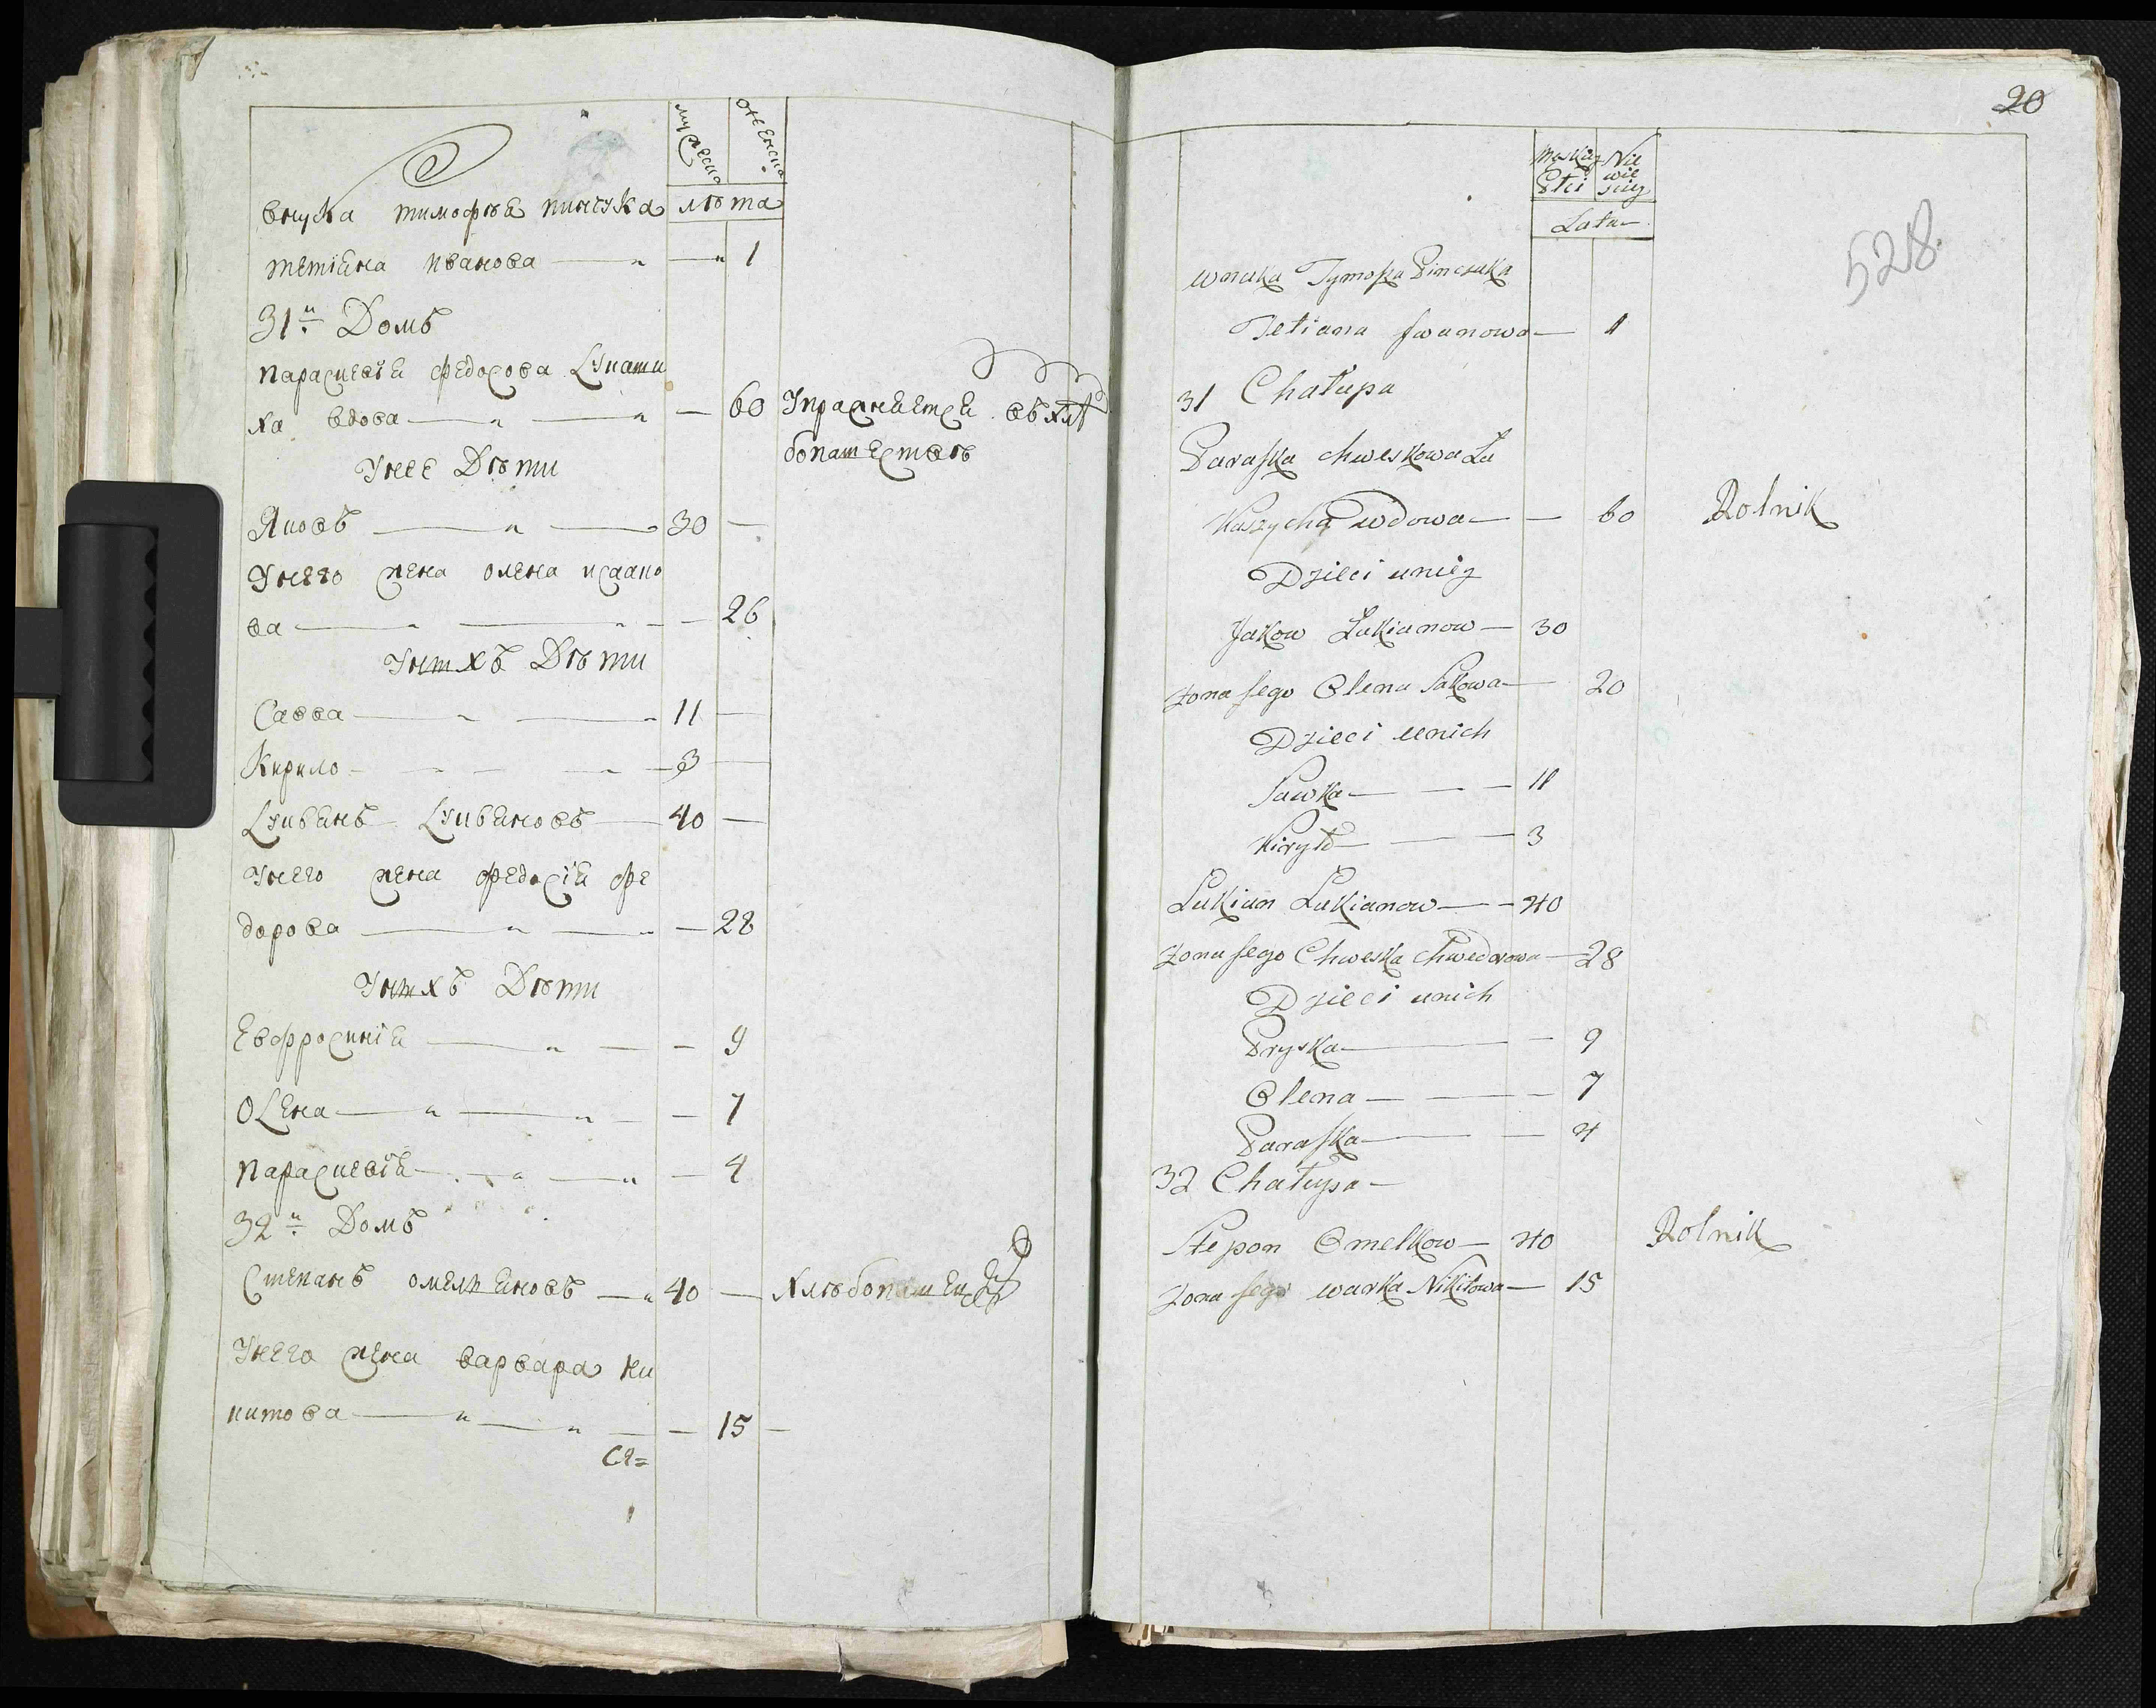 мужеска
женска
внука тимофѣя пинчука
лѣта
тетіяна иванова — 1
31й Домъ
парасцевія федосова Лукаши
ха вдова — — 60 Упражняется въ хлѣ
бопашествѣ
У нее Дѣти
Яковъ — 30 —
У него жена олена исако
ва — — 26
У нихъ Дѣти
Савва — 11 —
Кирило — 3 —
Лукьянъ Лукьяновъ — 40 —
У него жена федосія фе
дорова — — 28
У нихъ Дѣти
Евфросинія — — 9
Олена — — 7
парасцевія — — 4
32й Домъ
Степанъ омельяновъ — 40 — Хлѣбопашецъ
У него жена варвара ни
китова — — 15 —
20
528
Męskiey
Płci
Nie
wie
sciey
Lata
wnuka Tymoszka Pinczuka
Tetiana Jwanowa — 1
31 Chałupa
Paraska chweskowa Łu
kaszycha wdowa — — 60 Rolnik
Dzieci u niey
Jakow Łukianow — 30
żona Jego Olena Sakowa — 20
Dzieci u nich
Sawka — 11
Kiryło — 3
Łukian Łukianow — 40
żona Jego Chweska Chwedorowa — 28
Dzieci u nich
Pryska — 9
Olena — 7
Paraska — 4
32 Chałupa —
Stepon Omelkow — 40 Rolnik
żona Jego warka Nikitowa — 15